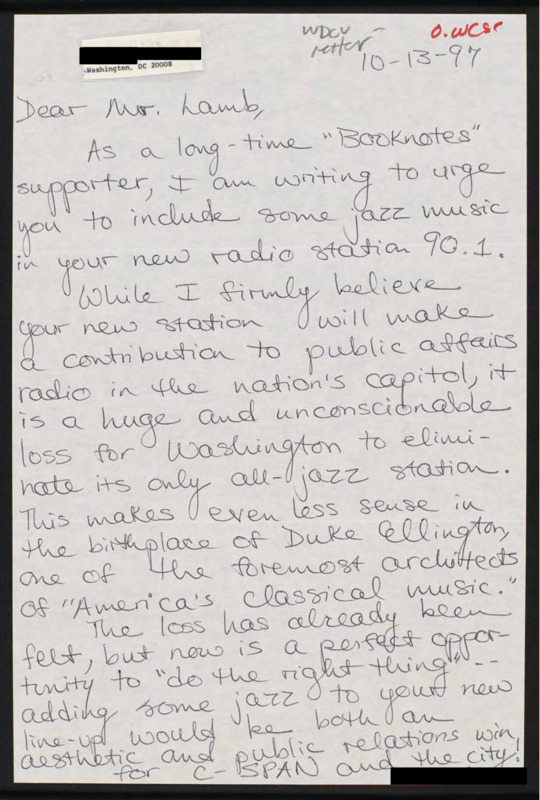 WDCU -
letter
O.WCSP
10-13-97
Washington, DC 20008
Dear Mr. Lamb,
As a long-time "Booknotes"
supporter, I am writing to urge
you to include some jazz music
in your new radio station 90.1.
While I firmly believe
your new station will make
a contribution to public affairs
radio in the nation's capitol, it
is a huge and unconscionable
loss for Washington to elimi-
nate its only all-jazz station.
This makes even less sense in
the birthplace of Duke Ellington,
one of the foremost architects
of "America's classical music."
The loss has already been
felt, but now is a perfect oppor-
tunity to "do the right thing" --
adding some jazz to your new
line-up would be both an
aesthetic and public relations win
for C-SPAN and the city!